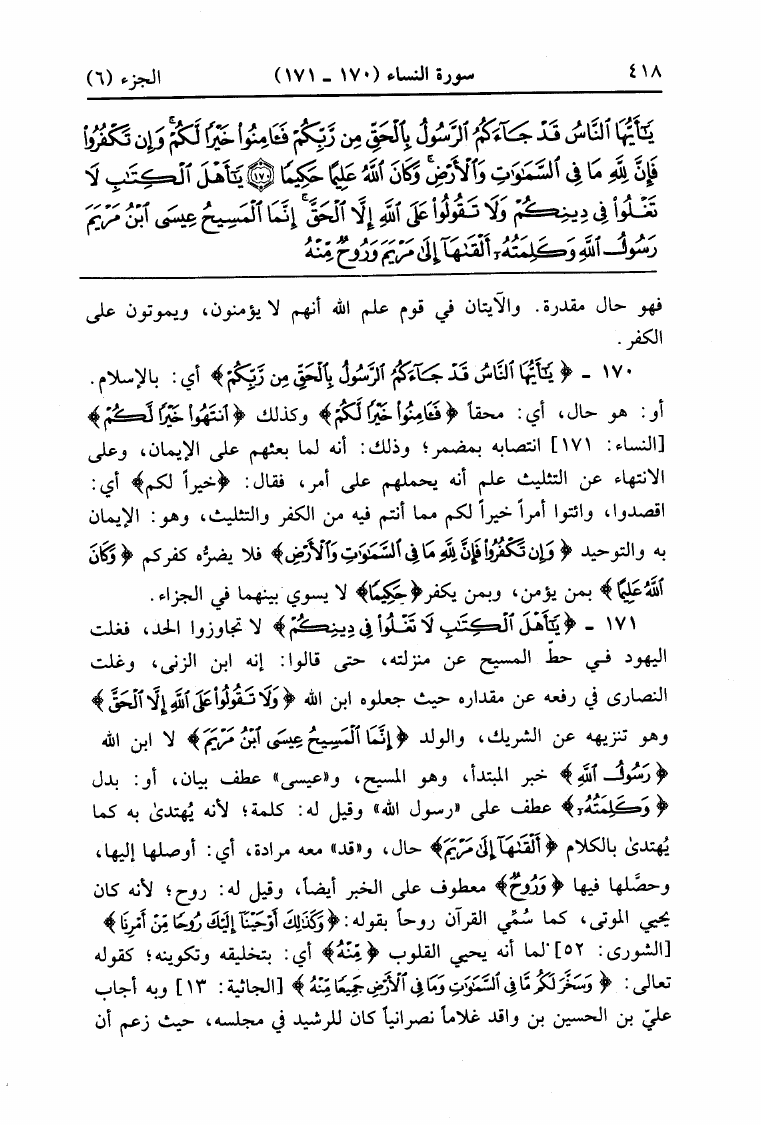 ٤١٨ سورة النساء (١٧٠ ـ ١٧١) الجزء (٦)
يَٰٓأَيُّهَا ٱلنَّاسُ قَدْ جَآءَكُمُ ٱلرَّسُولُ بِٱلْحَقِّ مِن رَّبِّكُمْ فَـَٔامِنُوا۟ خَيْرًا لَّكُمْ ۚ وَإِن تَكْفُرُوا۟
فَإِنَّ لِلَّهِ مَا فِى ٱلسَّمَٰوَٰتِ وَٱلْأَرْضِ ۚ وَكَانَ ٱللَّهُ عَلِيمًا حَكِيمًا ١٧٠ يَٰٓأَهْلَ ٱلْكِتَٰبِ لَا
تَغْلُوا۟ فِى دِينِكُمْ وَلَا تَقُولُوا۟ عَلَى ٱللَّهِ إِلَّا ٱلْحَقَّ ۚ إِنَّمَا ٱلْمَسِيحُ عِيسَى ٱبْنُ مَرْيَمَ
رَسُولُ ٱللَّهِ وَكَلِمَتُهُۥٓ أَلْقَىٰهَآ إِلَىٰ مَرْيَمَ وَرُوحٌ مِّنْهُ
فهو حال مقدرة. والآيتان في قوم علم الله أنهم لا يؤمنون، ويموتون على
الكفر.
١٧٠ ـ ﴿يَٰٓأَيُّهَا ٱلنَّاسُ قَدْ جَآءَكُمُ ٱلرَّسُولُ بِٱلْحَقِّ مِن رَّبِّكُمْ﴾ أي: بالإسلام.
أو: هو حال، أي: محقاً ﴿فَـَٔامِنُوا۟ خَيْرًا لَّكُمْ﴾ وكذلك ﴿ٱنتَهُوا۟ خَيْرًا لَّكُمْ﴾
[النساء: ١٧١] انتصابه بمضمر؛ وذلك: أنه لما بعثهم على الإيمان، وعلى
الانتهاء عن التثليث علم أنه يحملهم على أمر، فقال: ﴿خيراً لكم﴾ أي:
اقصدوا، وائتوا أمراً خيراً لكم مما أنتم فيه من الكفر والتثليث، وهو: الإيمان
به والتوحيد ﴿وَإِن تَكْفُرُوا۟ فَإِنَّ لِلَّهِ مَا فِى ٱلسَّمَٰوَٰتِ وَٱلْأَرْضِ﴾ فلا يضرُّه كفركم ﴿وَكَانَ
ٱللَّهُ عَلِيمًا﴾ بمن يؤمن، وبمن يكفر ﴿حَكِيمًا﴾ لا يسوي بينهما في الجزاء.
١٧١ ـ ﴿يَٰٓأَهْلَ ٱلْكِتَٰبِ لَا تَغْلُوا۟ فِى دِينِكُمْ﴾ لا تجاوزوا الحد، فغلت
اليهود في حطّ المسيح عن منزلته، حتى قالوا: إنه ابن الزنى، وغلت
النصارى في رفعه عن مقداره حيث جعلوه ابن الله ﴿وَلَا تَقُولُوا۟ عَلَى ٱللَّهِ إِلَّا ٱلْحَقَّ﴾
وهو تنزيهه عن الشريك، والولد ﴿إِنَّمَا ٱلْمَسِيحُ عِيسَى ٱبْنُ مَرْيَمَ﴾ لا ابن الله
﴿رَسُولُ ٱللَّهِ﴾ خبر المبتدأ، وهو المسيح، و«عيسى» عطف بيان، أو: بدل
﴿وَكَلِمَتُهُۥٓ﴾ عطف على «رسول الله» وقيل له: كلمة؛ لأنه يُهتدىٰ به كما
يُهتدىٰ بالكلام ﴿أَلْقَىٰهَآ إِلَىٰ مَرْيَمَ﴾ حال، و«قد» معه مرادة، أي: أوصلها إليها،
وحصَّلها فيها ﴿وَرُوحٌ﴾ معطوف على الخبر أيضاً، وقيل له: روح؛ لأنه كان
يحيي الموتى، كما سُمِّي القرآن روحاً بقوله: ﴿وَكَذَٰلِكَ أَوْحَيْنَآ إِلَيْكَ رُوحًا مِّنْ أَمْرِنَا﴾
[الشورى: ٥٢] لما أنه يحيي القلوب ﴿مِّنْهُ﴾ أي: بتخليقه وتكوينه؛ كقوله
تعالى: ﴿وَسَخَّرَ لَكُم مَّا فِى ٱلسَّمَٰوَٰتِ وَمَا فِى ٱلْأَرْضِ جَمِيعًا مِّنْهُ﴾ [الجاثية: ١٣] وبه أجاب
عليّ بن الحسين بن واقد غلاماً نصرانياً كان للرشيد في مجلسه، حيث زعم أن